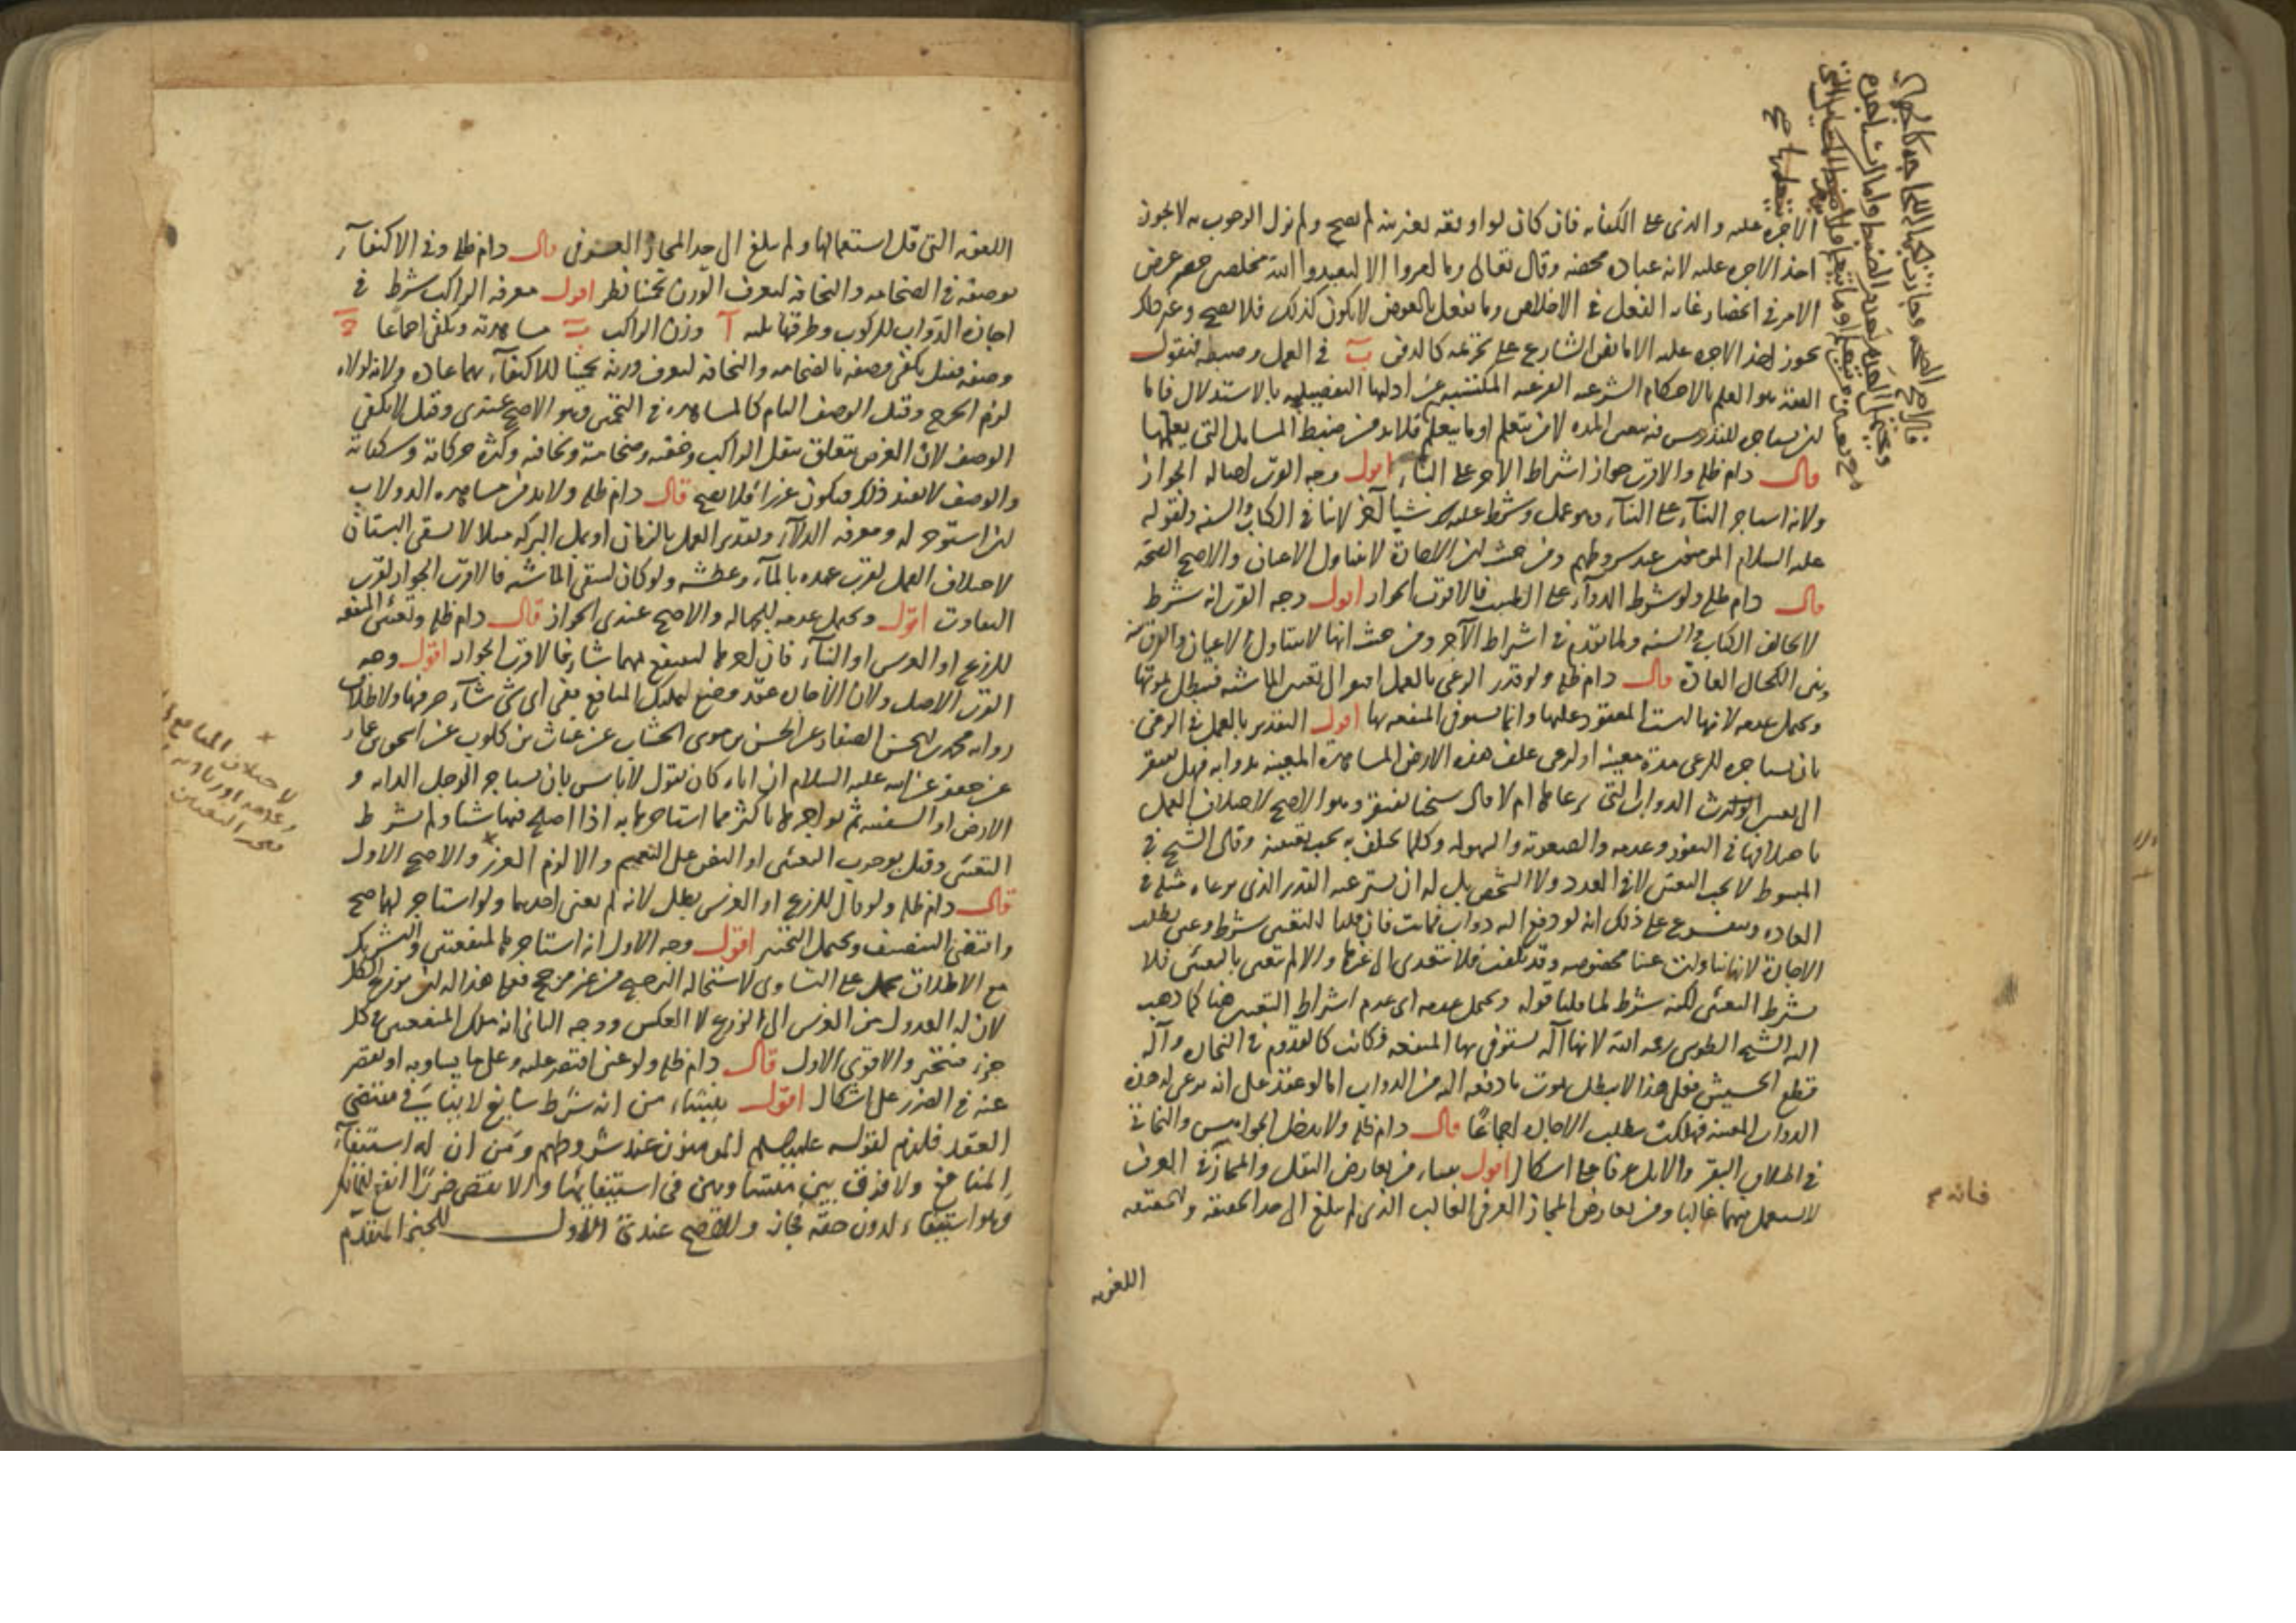 الاجرة عليه والذي على الكفاية فان كان لو اوقعه بغير نية لم يصح ولم يزل الوجوب به لا يجوز
اخذ الاجرة عليه لانه عبادة محضة وقال تعالى وما امروا الا ليعبدوا الله مخلصين حصر غرض
الامر في انحصار غاية الفعل في الاخلاص وما يفعل بالعوض لا يكون كذلك فلا يصح وغير ذلك
يجوز اخذ الاجرة عليه الا ما نص الشارع على تحريمه كالدفن ب في العمل وضبطه فنقول
الفقه هو العلم بالاحكام الشرعية الفرعية المكتسبة عن ادلتها التفصيلية بالاستدلال فاما
ان يستاجره للتدريس فيه بعض المدة لمن يتعلم او ما يتعلم فلا بد من ضبط المسايل التي يعلمها
قال دام ظله والاقرب جواز اشتراط الاجر على البناء اقول وجه القرب اصالة الجواز
ولانه استاجر البناء على البناء وهو عمل وشرط عليه شيئا آخر لا ينافي الكتاب والسنة ولقوله
عليه السلام المؤمنون عند شروطهم ومن حيث ان الاجارة لا تتناول الاعيان والاصح الصحة
قال دام ظله ولو شرط الدواء على الطبيب فالاقرب الجواز اقول وجه القرب انه شرط
لا يخالف الكتاب والسنة ولما تقدم في اشتراط الآجر ومن حيث انها لا تتناول الاعيان والفرق بينه
وبين الكحال العادة قال دام ظله ولو قدر الرعي بالعمل افتقر الى تعيين الماشية فتبطل بموتها
ويحتمل عدمه لانها ليست المعقود عليها وانما يستوفى المنفعة بها اقول التقدير بالعمل في الرعي
بان يستاجره للرعي مدة معينة او لرعي علف هذه الارض المشاهدة المعينة بدوابه فهل يفتقر
الى تعيين الدواب التي يرعاها ام لا قال شيخنا يفتقر وهو الاصح لاختلاف العمل
باختلافها في النفور وعدمه والصعوبة والسهولة وكلما يختلف به يجب تعيينه وقال الشيخ في
المبسوط لا يجب التعيين لا في العدد ولا الشخص بل له ان يسترعيه القدر الذي يرعاه مثله في
العادة ويتفرع على ذلك انه لو دفع اليه دواب فماتت فان قلنا التعيين شرط وعين بطلت
الاجارة لانها تناولت عينا مخصوصة وقد تلفت فلا تتعدى الى غيرها والا لم تتعين بالتعيين فلا
يشترط التعيين لكنه شرط لما قلنا قوله ويحتمل عدمه اي عدم اشتراط التعيين هنا كما ذهب
اليه الشيخ الطوسي رحمه الله لانها آلة يستوفي بها المنفعة فكانت كالقدوم في النجارة وآلة
قطع الحشيش فعلى هذا لا يبطل بموت ما دفعه اليه من الدواب اما لو عقد على انه يرعى له هذه
الدواب المعينة فهلكت بطلت الاجارة اجماعًا قال دام ظله ولا يدخل الجواميس والبخاتي
في اطلاق البقر والابل عرفا على اشكال اقول ينشاء من تعارض النقل والمجاز في العرف
لاستعمل فيهما غالبا ومن تعارض المجاز العرفي الغالب الذي لم يبلغ الى حد الحقيقة والحقيقة
اللغوية
اللغوية التي قل استعمالها ولم يبلغ الى حد المجاز العرفي قال دام ظله وفي الاكتفآء
بوصفه في الضخامة والنحافة ليعرف الوزن تخمينا نظر اقول معرفة الراكب شرط في
اجارة الدواب للركوب وطرقها ثلثة آ وزن الراكب ب مشاهدته ويكفي اجماعًا ج
وصفه فقيل يكفي وصفه بالضخامة والنحافة ليعرف وزنه تخمينا للاكتفآء بهما عادة ولانه لولاه
لزم الحرج وقيل الوصف التام كالمشاهدة في التخمين وهو الاصح عندي وقيل لا يكفي
الوصف لان الغرض يتعلق بثقل الراكب وخفته وضخامته ونحافته وكثرة حركاته وسكناته
والوصف لا يفيد ذلك فيكون غررا فلا يصح قال دام ظله ولا بد من مشاهدة الدولاب
ان استوجر له ومعرفة الدلاء وتقدير العمل بالزمان او بمل البركة مثلا لا بسقي البستان
لاختلاف العمل لقرب عهده بالمآء وعطشه ولو كان لسقي الماشية فالاقرب الجواز لقرب
التفاوت اقول ويحتمل عدمه للجهالة والاصح عندي الجواز قال دام ظله وتعيين المنفعة
للزرع او الغرس او البناء فان آجرها لينتفع مهما شاء فالاقرب الجواز اقول وجه
القرب الاصل ولان الاجارة عقد وضع لتمليك المنافع ففي اي شي شاء صرفها ولاطلاق
رواية محمد بن الحسن الصفار عن الحسن بن موسى الخشاب عن غياث بن كلوب عن اسحق بن عمار
عن جعفر عن ابيه عليه السلام ان اباه كان يقول لا باس بان يستاجر الرجل الدابه و
الارض او السفينة ثم يواجرها باكثر مما استاجرها به اذا اصلح فيها شيئا ولم يشرط
التعيين وقيل بوجوب التعيين او النص على التعميم والا لزم الغرر والاصح الاول
قال دام ظله ولو قال للزرع او الغرس بطل لانه لم يعين احدهما ولو استاجر لهما صح
واقتضى التنصيف ويحتمل التخيير اقول وجه الاول انه استاجرها لمنفعتين والتشريك
مع الاطلاق يحمل على التساوي لاستحالة الترجيح من غير مرجح فعلى هذا له ان يزرع الكل
لان له العدول من الغرس الى الزرع لا العكس ووجه الثاني انه ملك المنفعتين في كل
جزء فيتخير والاقوى الاول قال دام ظله ولو عين اقتصر عليه وعلى ما يساويه او يقصر
عنه في الضرر على اشكال اقول ينشاء من انه شرط سايغ لا ينافي مقتضى
العقد فلزم لقوله عليه السلام المؤمنون عند شروطهم ومن ان له استيفآء
المنافع ولا فرق بين متساويين في استيفائها والانقص ضررًا انفع للمالك
وهو استيفاء لدون حقه فجاز والاصح عندي الاول للخبر المتقدم
لاختلاف المنافع